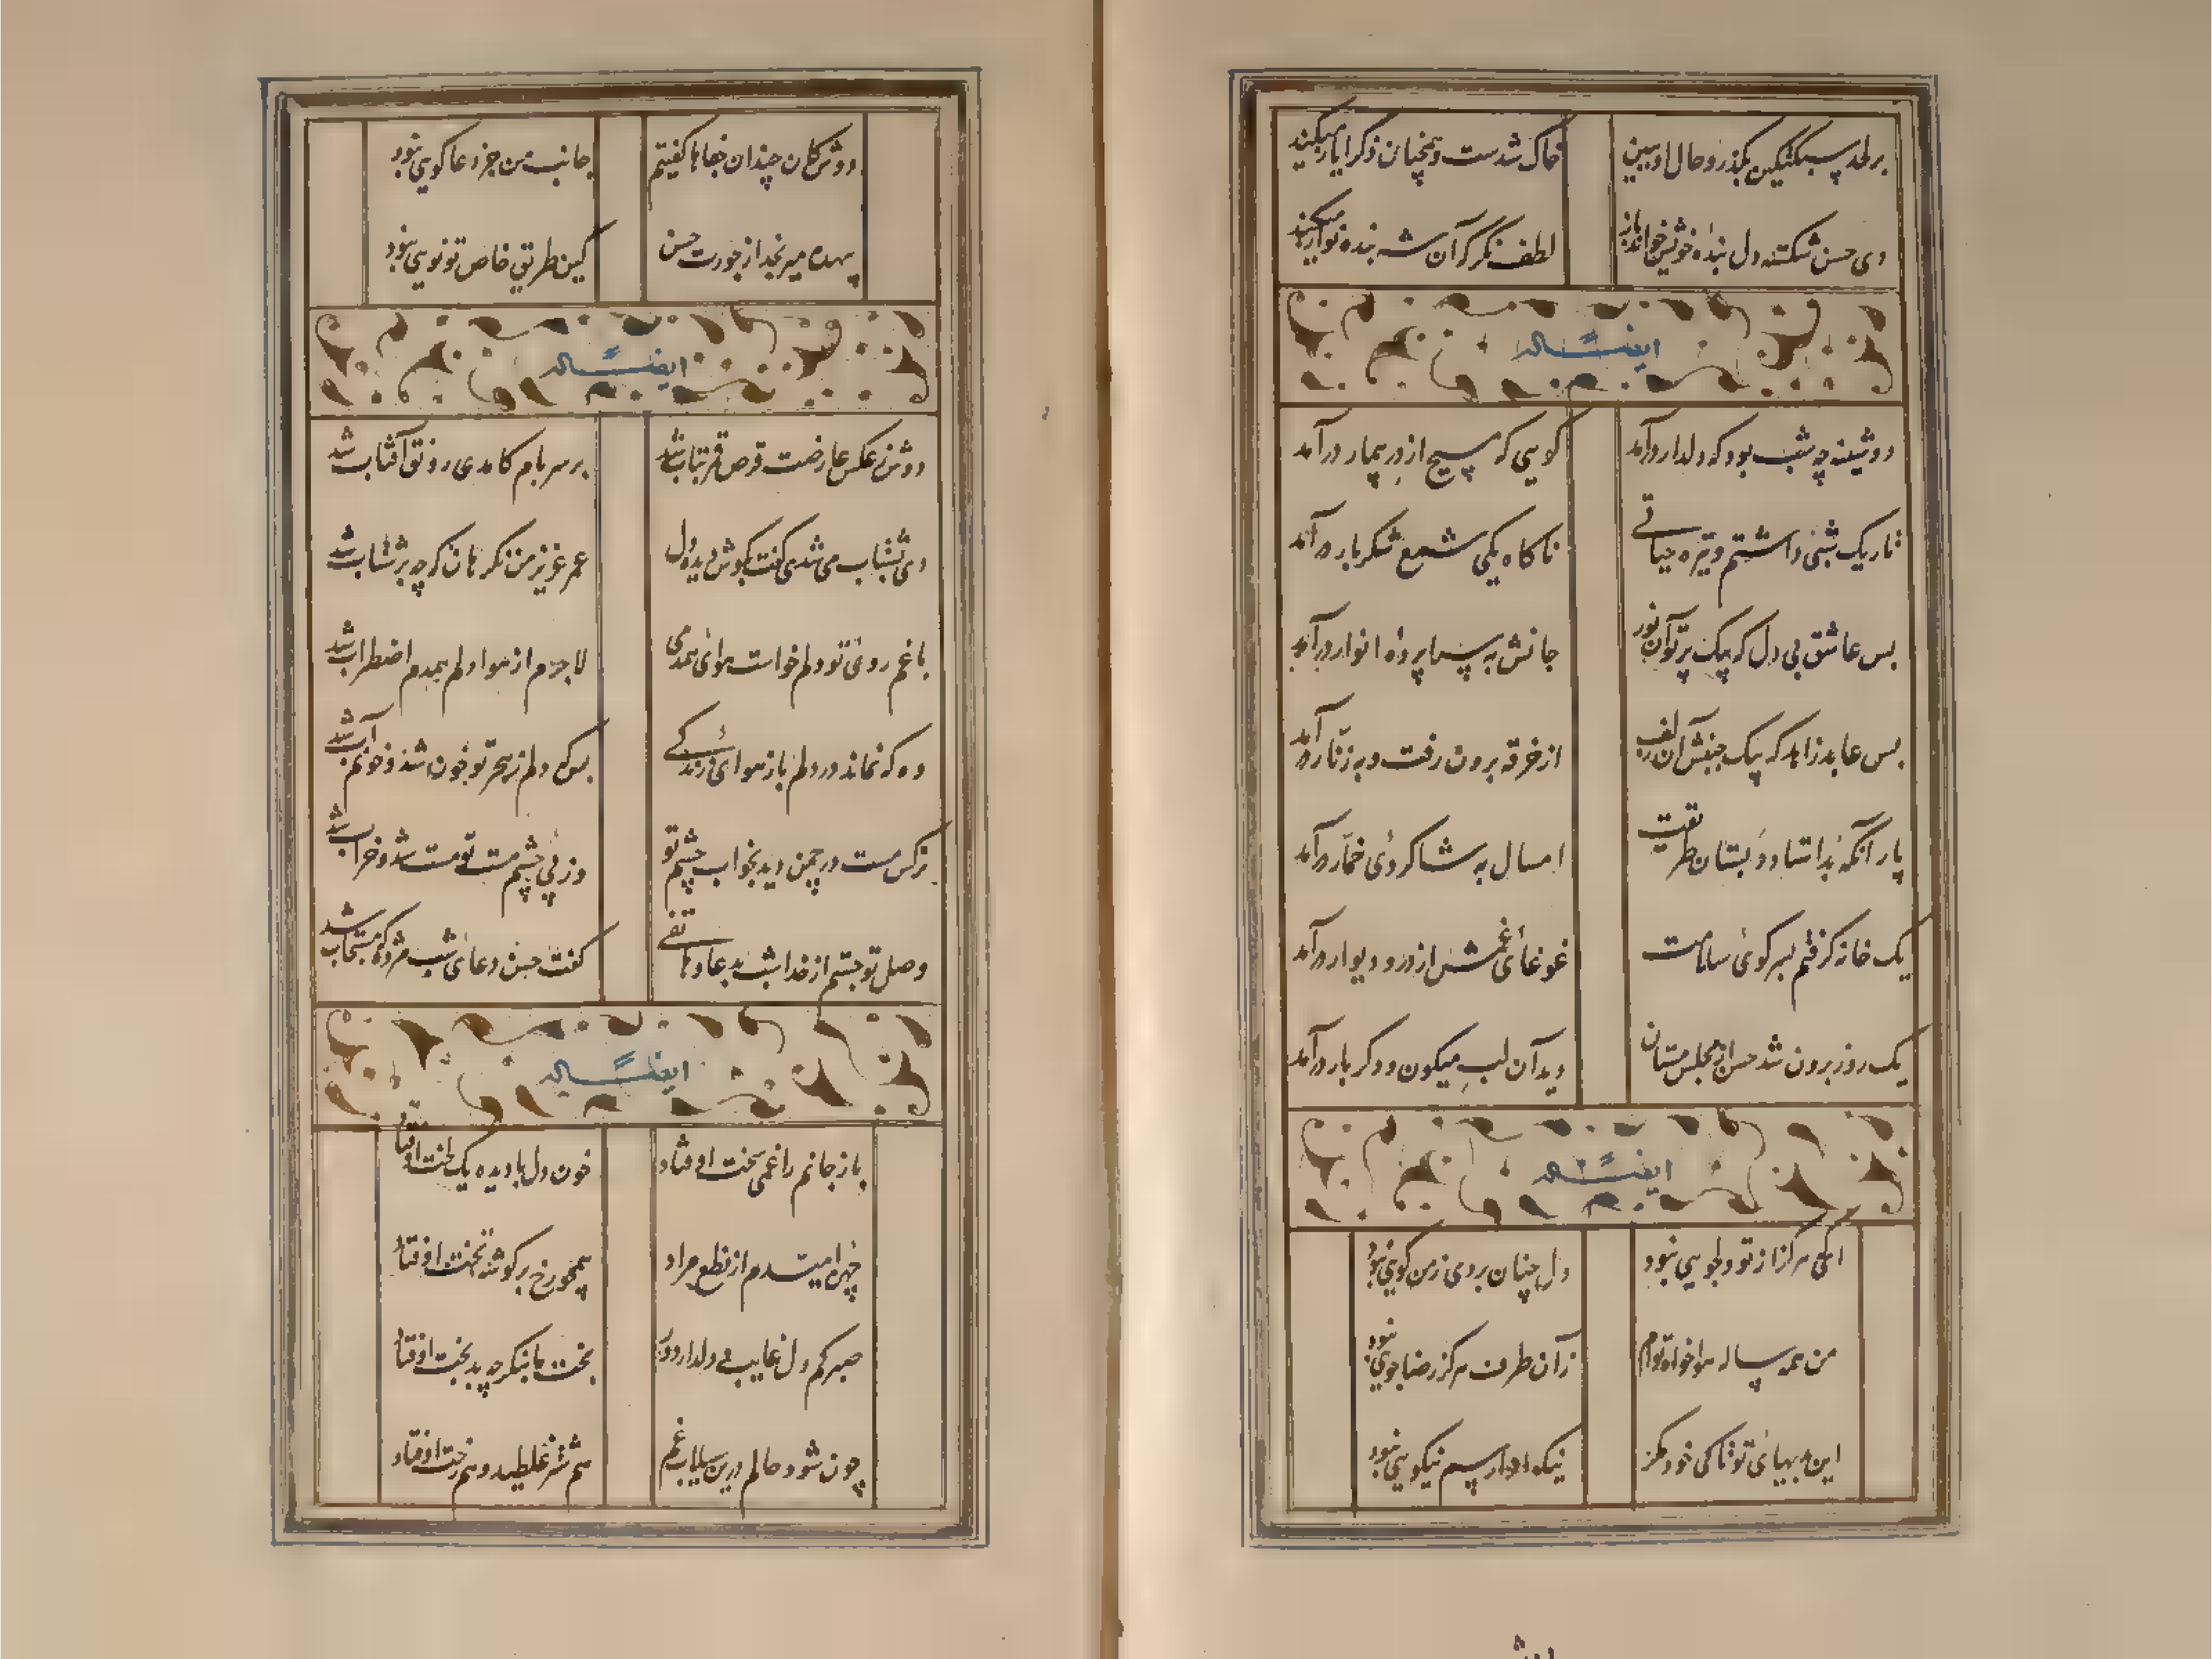 بر لحد سبکتکین بگذر و حال او ببین خاک شدست و همچنان ذکر ایاز میکند
دی حسن شکسته دل بنده خویش خواند باز لطف نگر که آن شه بنده نواز میکند
ایضاً له
دوشینه چه شب بود که دلدار درآمد کویی که مسیح از در بیمار درآمد
تاریک شبی داشتم و تیره حیاتی ناکاه یکی شمع شکربار درآمد
بس عاشق بی دل که بیک پرتو آن نور جانش به سراپرده انوار درآمد
بس عابد زاهد که بیک جنبش آن زلف از خرقه برون رفت و به زنار درآمد
پار آنکه بد استاد دبستان طریقت امسال به شاکردی خمار درآمد
یک خانه گرفتم بسر کوی سلامت غوغای غمش از در و دیوار درآمد
یک روز برون شد حسن از مجلس مستان دید آن لب میکون و دکر بار درآمد
ایضاً له
ای که هرکز از تو دلجویی نبود دل چنان بردی ز من کویی نبود
من همه ساله هواخواه توام زآن طرف هرکز رضاجویی نبود
این بهیائی تو تاکی خود هرکز نیکوانرا رسم نیکویی نبود
دوش کان چندان جفاها کفتیم جانب من جز دعا کویی نبود
بیهده میرنجد از جورت حسن کین طریق خاص تو نویی نبود
ایضاً له
دوش ز عکس عارضت قرص قمر بتاب شد بر سر بام کامدی رونق آفتاب شد
دی بشتاب می شدی کفت بکوش دیده دل عمر عزیز من نکر هان که چه پرشتاب شد
با غم روی تو دلم خواست هوای همدمی لاجرم از هوا دلم همدم اضطراب شد
وه که نماند در دلم باز هوای زندگی بس که دلم ز هجر تو خون شد و خونم آب شد
نرکس مست در چمن دید بخواب چشم تو وز پی چشم مست تو مست شد و خراب شد
وصل تو جستم از خدا شب بدعا و هاتفی کفت حسن دعای شب مژده که مستجاب شد
ایضاً له
باز جانم را غمی سخت اوفتاد خون دل با دیده یک لخت اوفتاد
چهرها میشدم از نطع مراد همچو رخ بر کوشه تخت اوفتاد
صبر کم دل غایب و دلدار دور بخت ما بنکر چه بدبخت اوفتاد
چون شود حالم درین سیلاب غم هم شتر غلطید و هم رخت اوفتاد